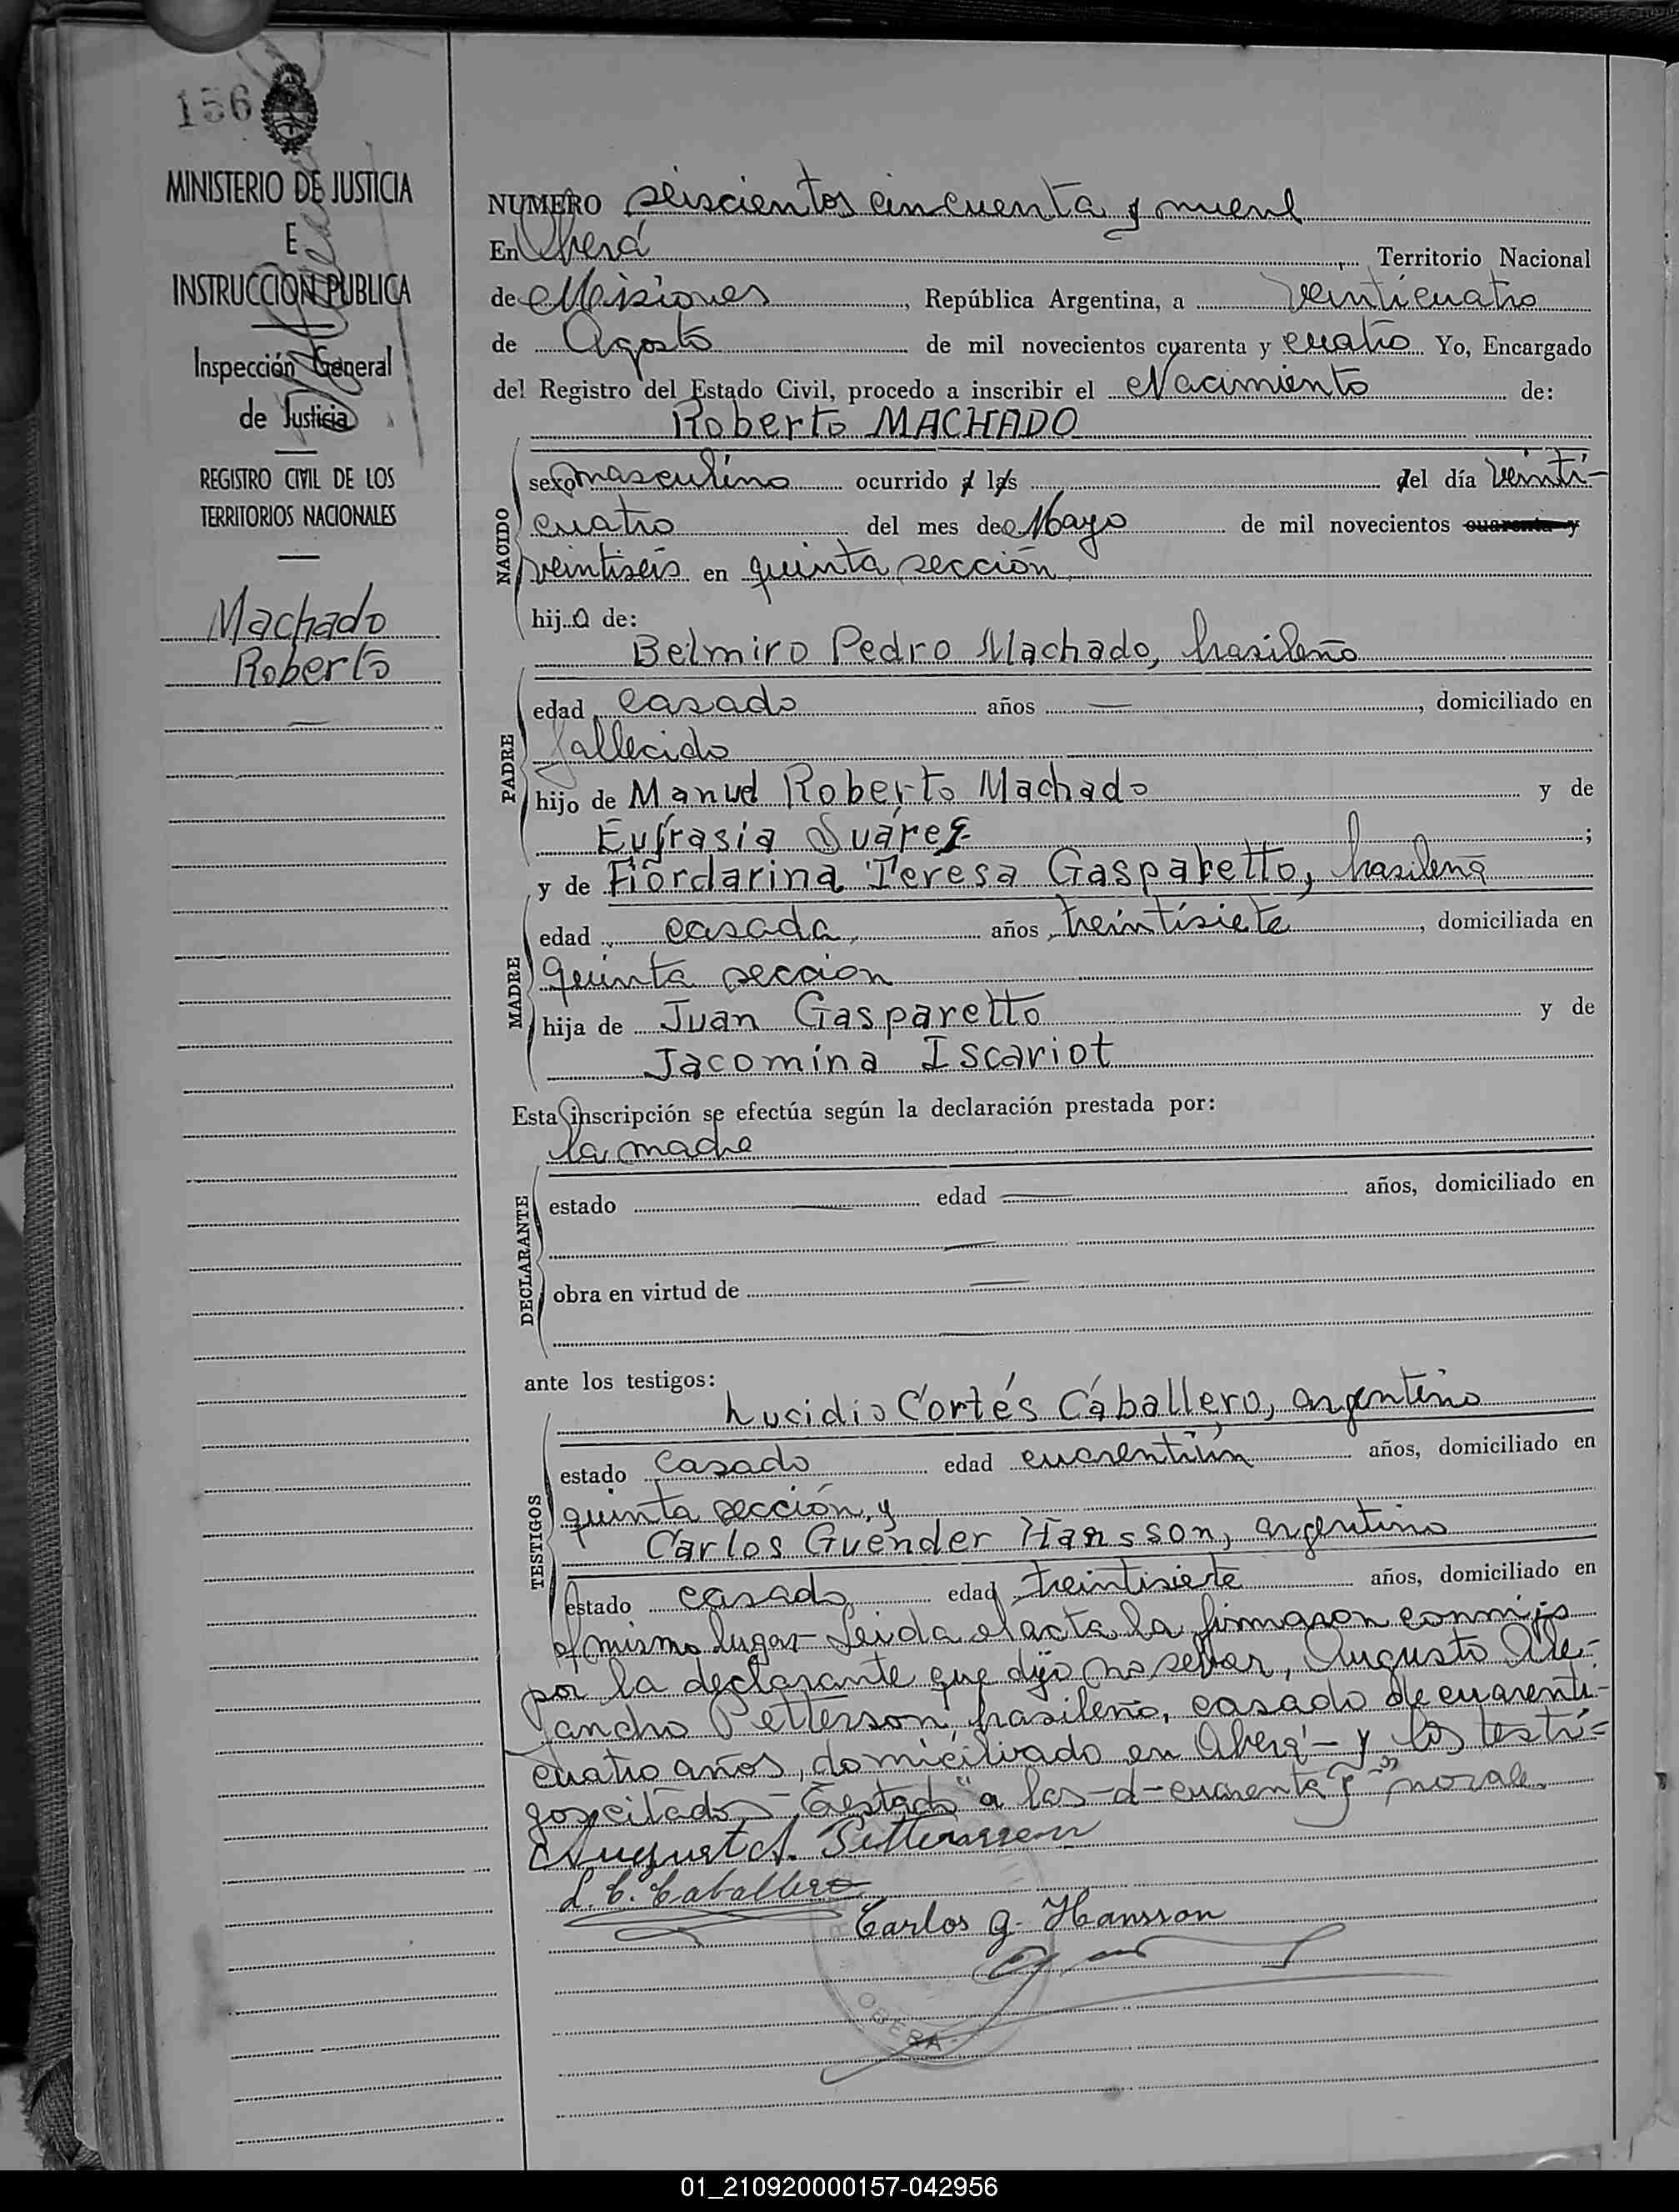 156
MINISTERIO DE JUSTICIA
E
INSTRUCCION PUBLICA
Inspección General
de Justicia
REGISTRO CIVIL DE LOS
TERRITORIOS NACIONALES
Machado
Roberto
NUMERO seiscientos cincuenta y nueve
En Oberá, Territorio Nacional
de Misiones, República Argentina, a veinticuatro
de Agosto de mil novecientos cuarenta y cuatro Yo, Encargado
del Registro del Estado Civil, procedo a inscribir el Nacimiento de:
Roberto MACHADO
NACIDO
sexo masculino ocurrido a las del día veinti-
cuatro del mes de Mayo de mil novecientos cuarenta y
veintiseis en quinta sección
hijo de:
Belmiro Pedro Machado, brasileño
PADRE
edad casado años — , domiciliado en
fallecido
hijo de Manuel Roberto Machado y de
Eufrasia Suárez ;
y de Fiordarina Teresa Gasparetto, brasileña
MADRE
edad casada años treintisiete, domiciliada en
quinta seccion
hija de Juan Gasparetto y de
Jacomina Iscariot
Esta inscripción se efectúa según la declaración prestada por:
la madre
DECLARANTE
estado — edad — años, domiciliado en
—
obra en virtud de —
—
ante los testigos:
Lucidio Cortés Caballero, argentino
TESTIGOS
estado casado edad cuarentiún años, domiciliado en
quinta sección, y
Carlos Guender Hansson, argentino
estado casado edad treintisiete años, domiciliado en
el mismo lugar- Leida el acta la firmaron conmigo
por la declarante que dijo no saber, Augusto Ale-
jandro Petterson brasileño, casado de cuarenti-
cuatro años, domiciliado en Oberá- y los testi=
gos citados - Testado "a las-d-cuarenta y" no vale.
August A. Pettersson
L. C. Caballero
Carlos G. Hansson
OBERA
01_210920000157-042956